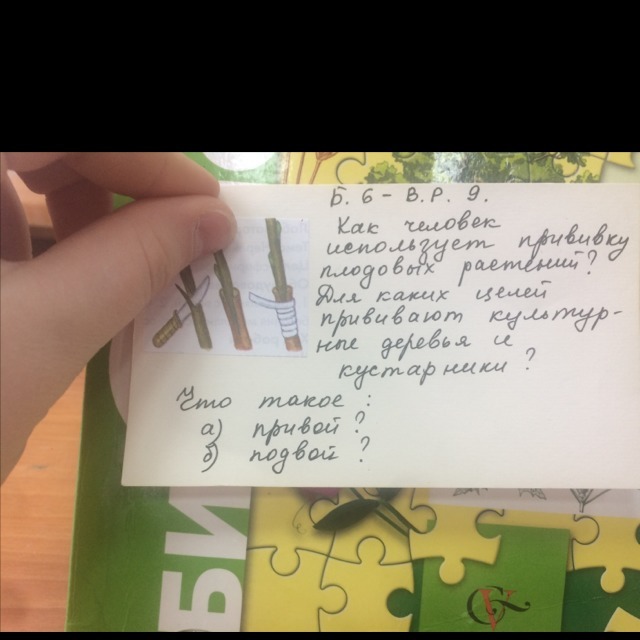 Б. 6 - В.Р. 9.
Как человек
использует прививку
плодовых растений?
Для каких целей
прививают культур-
ные деревья и
кустарники?
Что такое:
а) привой?
б) подвой?
БИ